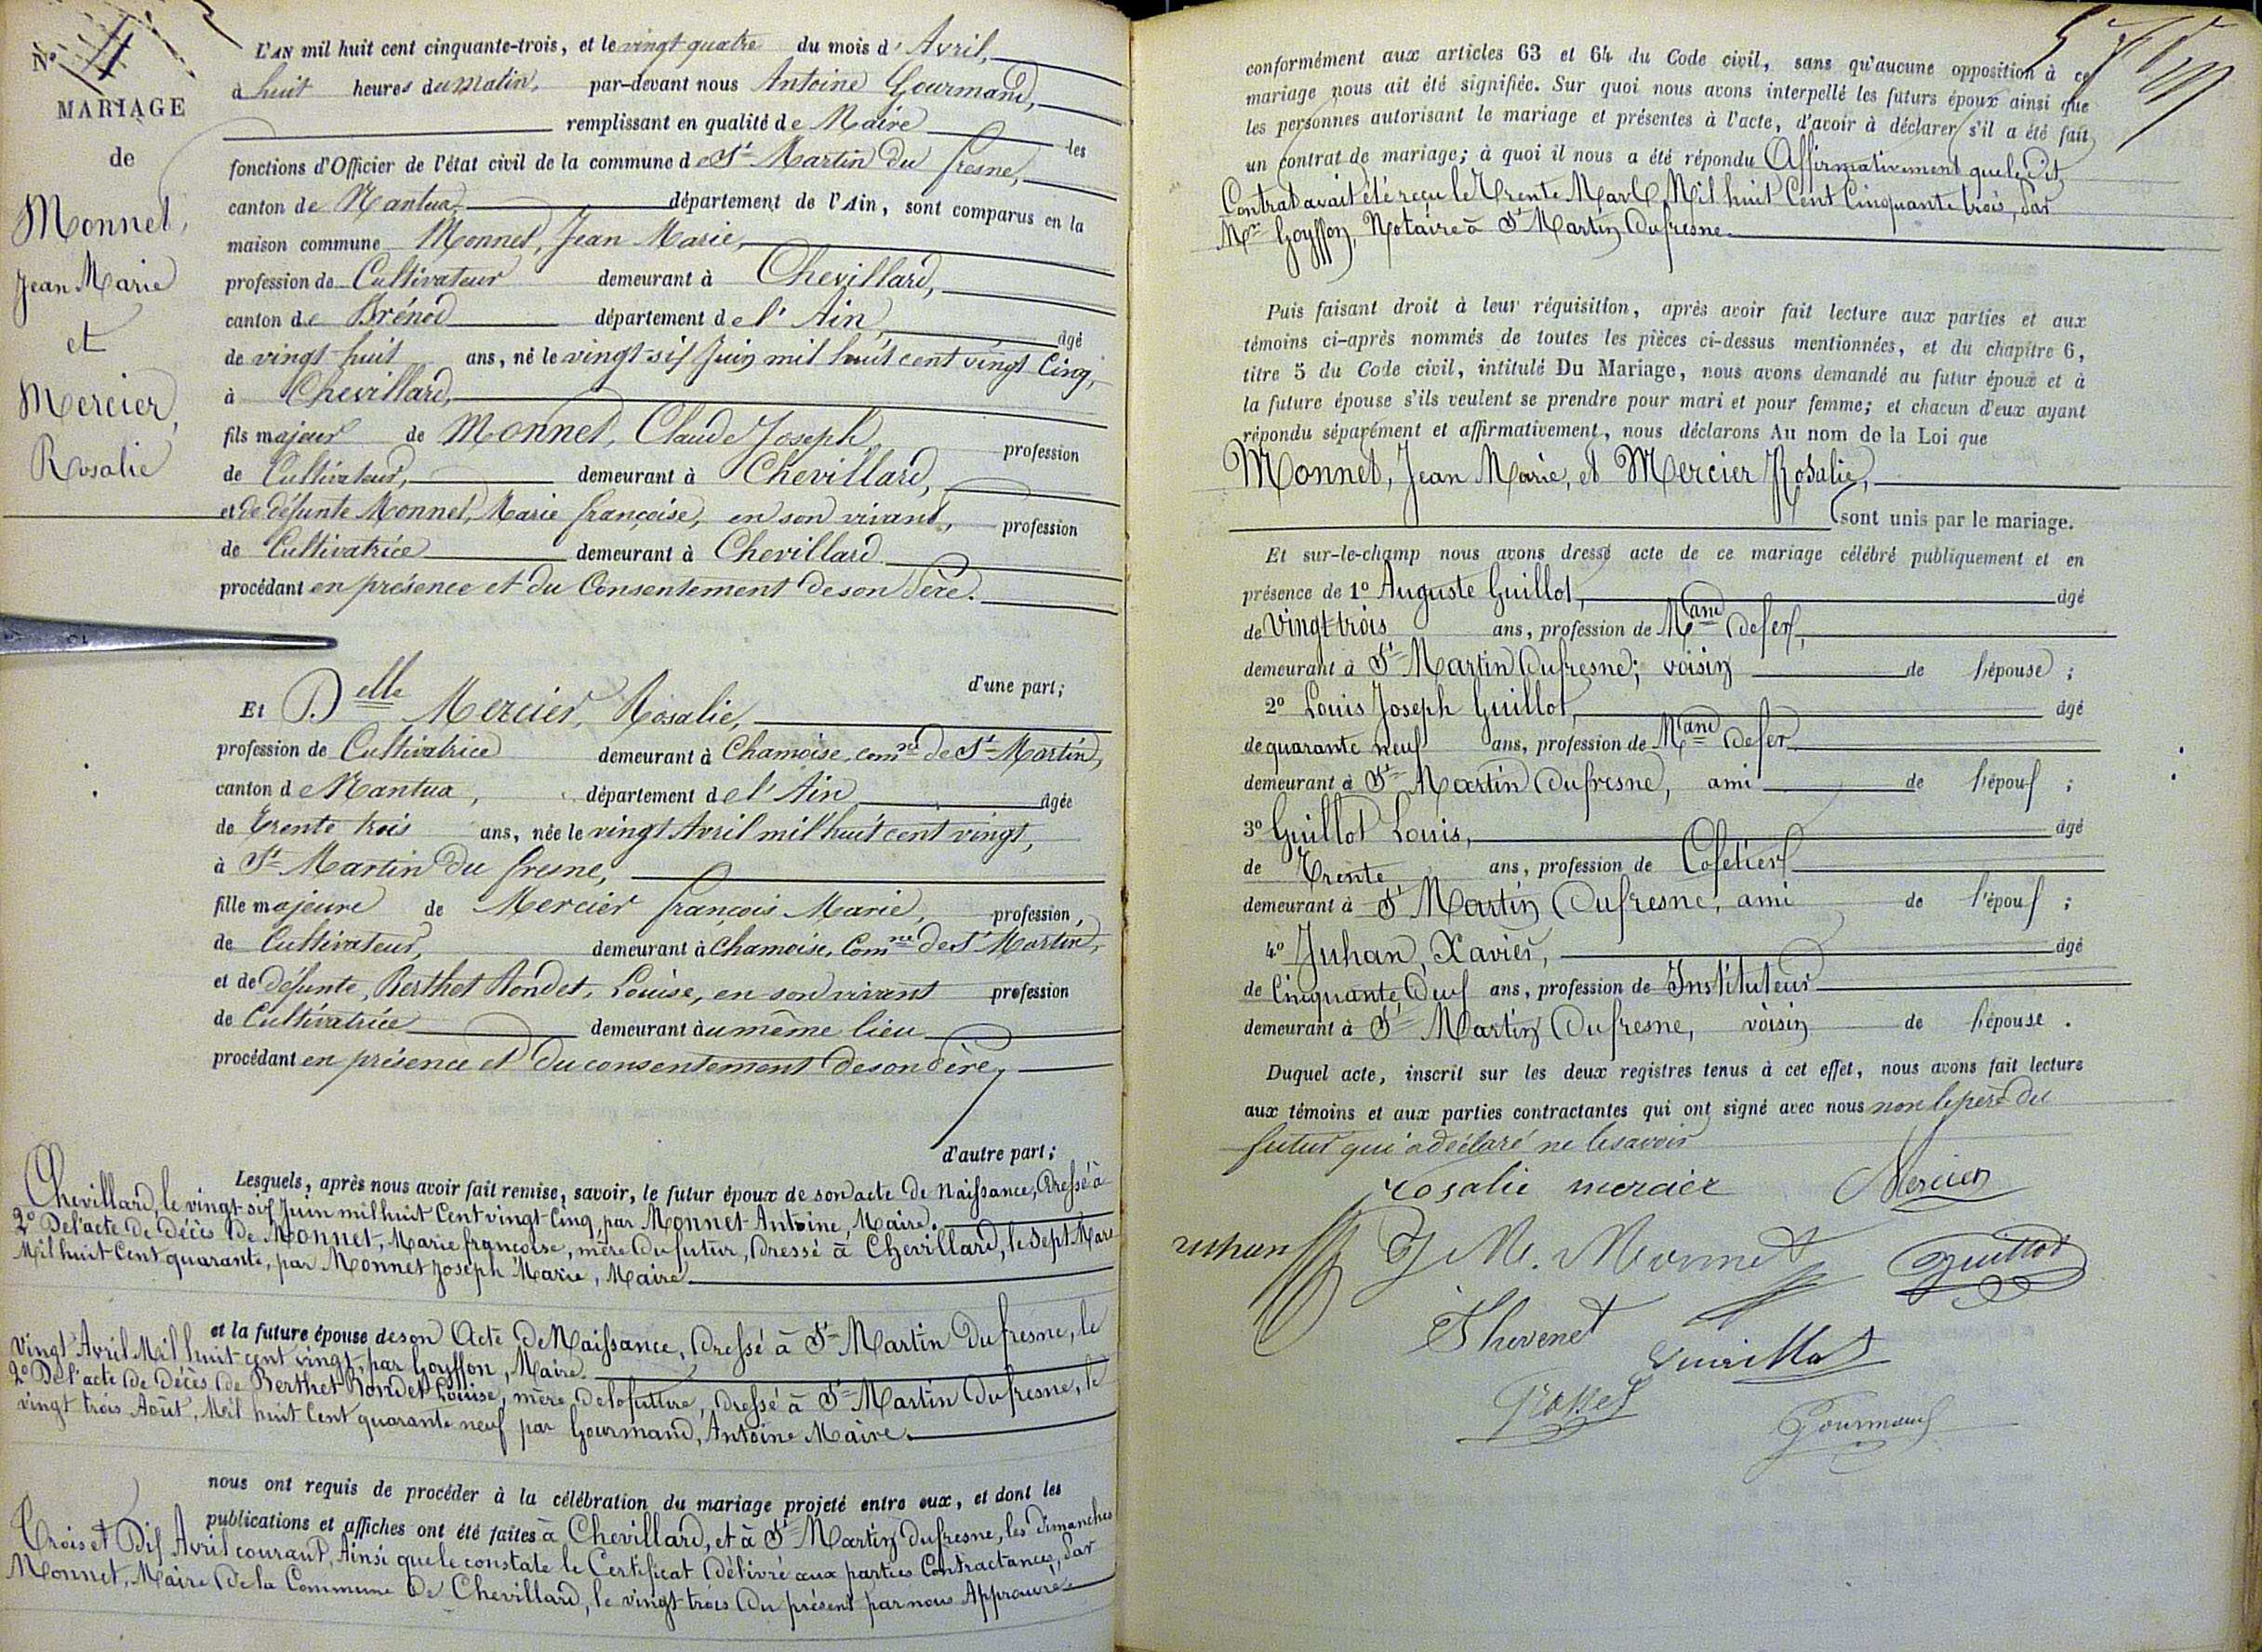 N° 11
MARIAGE
de
Monnet,
Jean Marie
et
Mercier,
Rosalie
L'AN mil huit cent cinquante-trois, et le vingt quatre du mois d'Avril,
à huit heures du matin, par-devant nous Antoine Gourmand,
remplissant en qualité de Maire les
fonctions d'Officier de l'état civil de la commune de St Martin du fresne,
canton de Nantua, département de l'Ain, sont comparus en la
maison commune Monnet, Jean Marie,
profession de Cultivateur demeurant à Chevillard,
canton de Brénod département de l'Ain, âgé
de vingt huit ans, né le vingt-six Juin mil huit cent vingt Cinq,
à Chevillard,
fils majeur de Monnet, Claude Joseph, profession
de Cultivateur, demeurant à Chevillard,
et de défunte Monnet, Marie françoise, en son vivant, profession
de Cultivatrice demeurant à Chevillard
procédant en présence et du Consentement de son Père.
d'une part;
Et Delle Mercier, Rosalie,
profession de Cultivatrice demeurant à Chamoise, comne de St Martin,
canton de Nantua, département de l'Ain, âgée
de Trente trois ans, née le vingt Avril mil huit cent vingt,
à St Martin du fresne,
fille majeure de Mercier françois Marie, profession,
de Cultivateur, demeurant à Chamoise, Comne de St Martin,
et de défunte, Berthet Rondet, Louise, en son vivant profession
de Cultivatrice demeurant au même lieu
procédant en présence et du consentement de son Père,
d'autre part;
Lesquels, après nous avoir fait remise, savoir, le futur époux de son acte de Naissance, Dressé à
Chevillard, le vingt-six Juin mil huit Cent vingt Cinq, par Monnet Antoine, Maire.
2° De l'acte de Décès de Monnet, Marie françoise, mère du futur, dressé à Chevillard, le Sept Mars
Mil huit Cent quarante, par Monnet Joseph Marie, Maire
et la future épouse de son Acte De Naissance, Dressé à St Martin Dufresne, le
Vingt Avril Mil huit cent vingt, par Goyffon, Maire.
2° De l'acte de Décès de Berthet Rondet Louise, mère de la future, dressé à St Martin Dufresne, le
vingt trois Août, Mil huit Cent quarante neuf par Gourmand, Antoine Maire.
nous ont requis de procéder à la célébration du mariage projeté entre eux, et dont les
publications et affiches ont été faites à Chevillard, et à St Martin Dufresne, les dimanches
Trois et Dix Avril courant, Ainsi que le constate le Certificat Délivré aux parties Contractances, Par
Monnet, Maire De la Commune De Chevillard, le vingt-trois du présent par nous Approuvé
conformément aux articles 63 et 64 du Code civil, sans qu'aucune opposition à ce
mariage nous ait été signifiée. Sur quoi nous avons interpellé les futurs époux ainsi que
les personnes autorisant le mariage et présentes à l'acte, d'avoir à déclarer s'il a été fait
un contrat de mariage; à quoi il nous a été répondu Affirmativement que le dit
Contrat avait été reçu le Trente Mars Mil huit Cent Cinquante trois, Par
Me Goyffon, Notaire à St Martin Dufresne.
Puis faisant droit à leur réquisition, après avoir fait lecture aux parties et aux
témoins ci-après nommés de toutes les pièces ci-dessus mentionnées, et du chapitre 6,
titre 5 du Code civil, intitulé Du Mariage, nous avons demandé au futur époux et à
la future épouse s'ils veulent se prendre pour mari et pour femme; et chacun d'eux ayant
répondu séparément et affirmativement, nous déclarons Au nom de la Loi que
Monnet, Jean Marie, et Mercier Rosalie,
sont unis par le mariage.
Et sur-le-champ nous avons dressé acte de ce mariage célébré publiquement et en
présence de 1° Auguste Guillot, âgé
de Vingt-trois ans, profession de Mand De fer,
demeurant à St Martin Dufresne; voisin de l'épouse;
2° Louis Joseph Guillot, âgé
de quarante neuf ans, profession de Mand De fer
demeurant à St Martin Dufresne, ami de l'époux;
3° Guillot Louis, âgé
de Trente ans, profession de Cafetier
demeurant à St Martin Dufresne, ami de l'époux;
4° Juhan, Xavier, âgé
de Cinquante Deux ans, profession de Instituteur
demeurant à St Martin Dufresne, voisin de l'épouse.
Duquel acte, inscrit sur les deux registres tenus à cet effet, nous avons fait lecture
aux témoins et aux parties contractantes qui ont signé avec nous non le père du
futur qui a déclaré ne le savoir
rosalie mercier Mercier
Juhan J M. Monnet Guillot
Thevenet Guillot
Gourmand